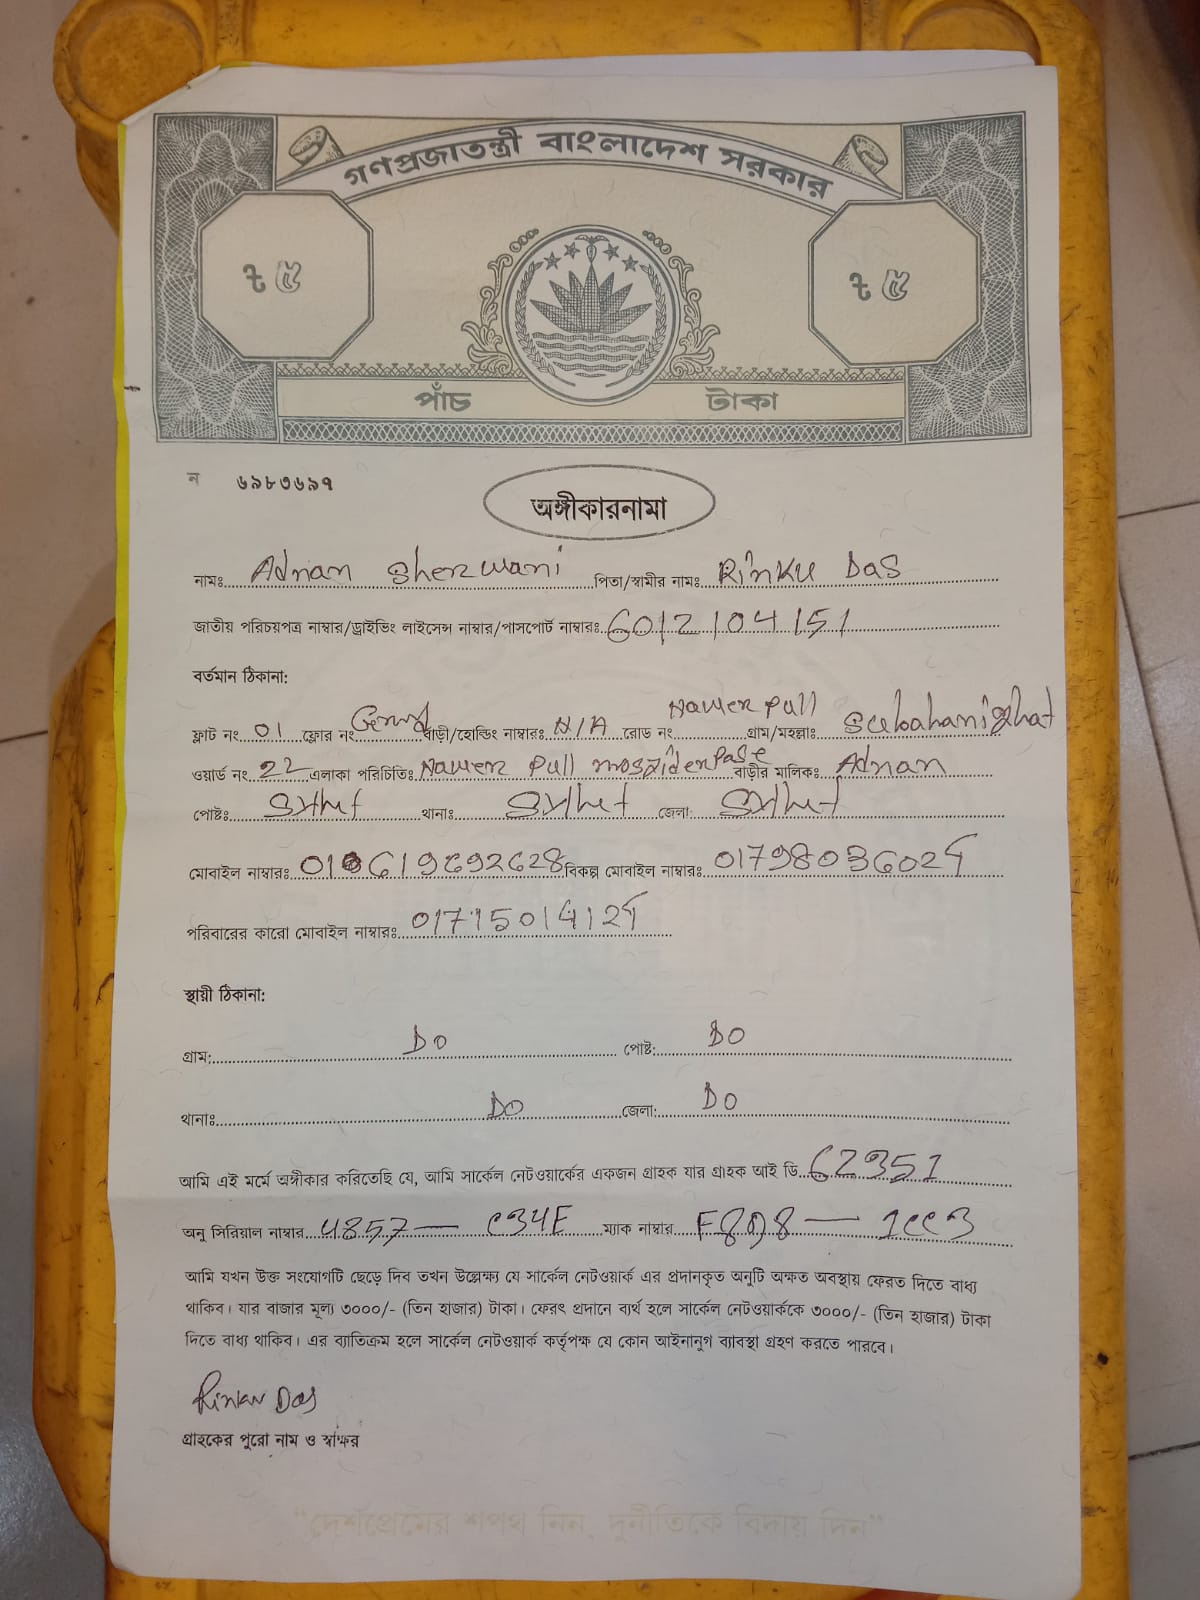 গণপ্রজাতন্ত্রী বাংলাদেশ সরকার
৳ ৫ ৳ ৫
পাঁচ টাকা
ন ৬৯৮৩৬৯৭
অঙ্গীকারনামা
নামঃ Adnan Sherwani পিতা/স্বামীর নামঃ Rinku Das
জাতীয় পরিচয়পত্র নাম্বার/ড্রাইভিং লাইসেন্স নাম্বার/পাসপোর্ট নাম্বারঃ 6012104151
বর্তমান ঠিকানা:
ফ্লাট নং 01 ফ্লোর নং বাড়ী/হোল্ডিং নাম্বারঃ N/A রোড নং Nawer Pull গ্রাম/মহল্লাঃ Subahanighat
ওয়ার্ড নং 22 এলাকা পরিচিতিঃ Nawer Pull বাড়ীর মালিকঃ Adnan
পোষ্টঃ Sylhet থানাঃ Sylhet জেলা: Sylhet
মোবাইল নাম্বারঃ বিকল্প মোবাইল নাম্বারঃ
পরিবারের কারো মোবাইল নাম্বারঃ
স্থায়ী ঠিকানা:
গ্রাম: DO পোষ্ট: DO
থানাঃ DO জেলা: DO
আমি এই মর্মে অঙ্গীকার করিতেছি যে, আমি সার্কেল নেটওয়ার্কের একজন গ্রাহক যার গ্রাহক আই ডি 62351
অনু সিরিয়াল নাম্বার 4857 — C34E ম্যাক নাম্বার F898 — 1CC3
আমি যখন উক্ত সংযোগটি ছেড়ে দিব তখন উল্লেক্ষ্য যে সার্কেল নেটওয়ার্ক এর প্রদানকৃত অনুটি অক্ষত অবস্থায় ফেরত দিতে বাধ্য
থাকিব। যার বাজার মূল্য ৩০০০/- (তিন হাজার) টাকা। ফেরৎ প্রদানে ব্যর্থ হলে সার্কেল নেটওয়ার্ককে ৩০০০/- (তিন হাজার) টাকা
দিতে বাধ্য থাকিব। এর ব্যাতিক্রম হলে সার্কেল নেটওয়ার্ক কর্তৃপক্ষ যে কোন আইনানুগ ব্যাবস্থা গ্রহণ করতে পারবে।
Rinku Das
গ্রাহকের পুরো নাম ও স্বাক্ষর
"দেশপ্রেমের শপথ নিন, দুর্নীতিকে বিদায় দিন"